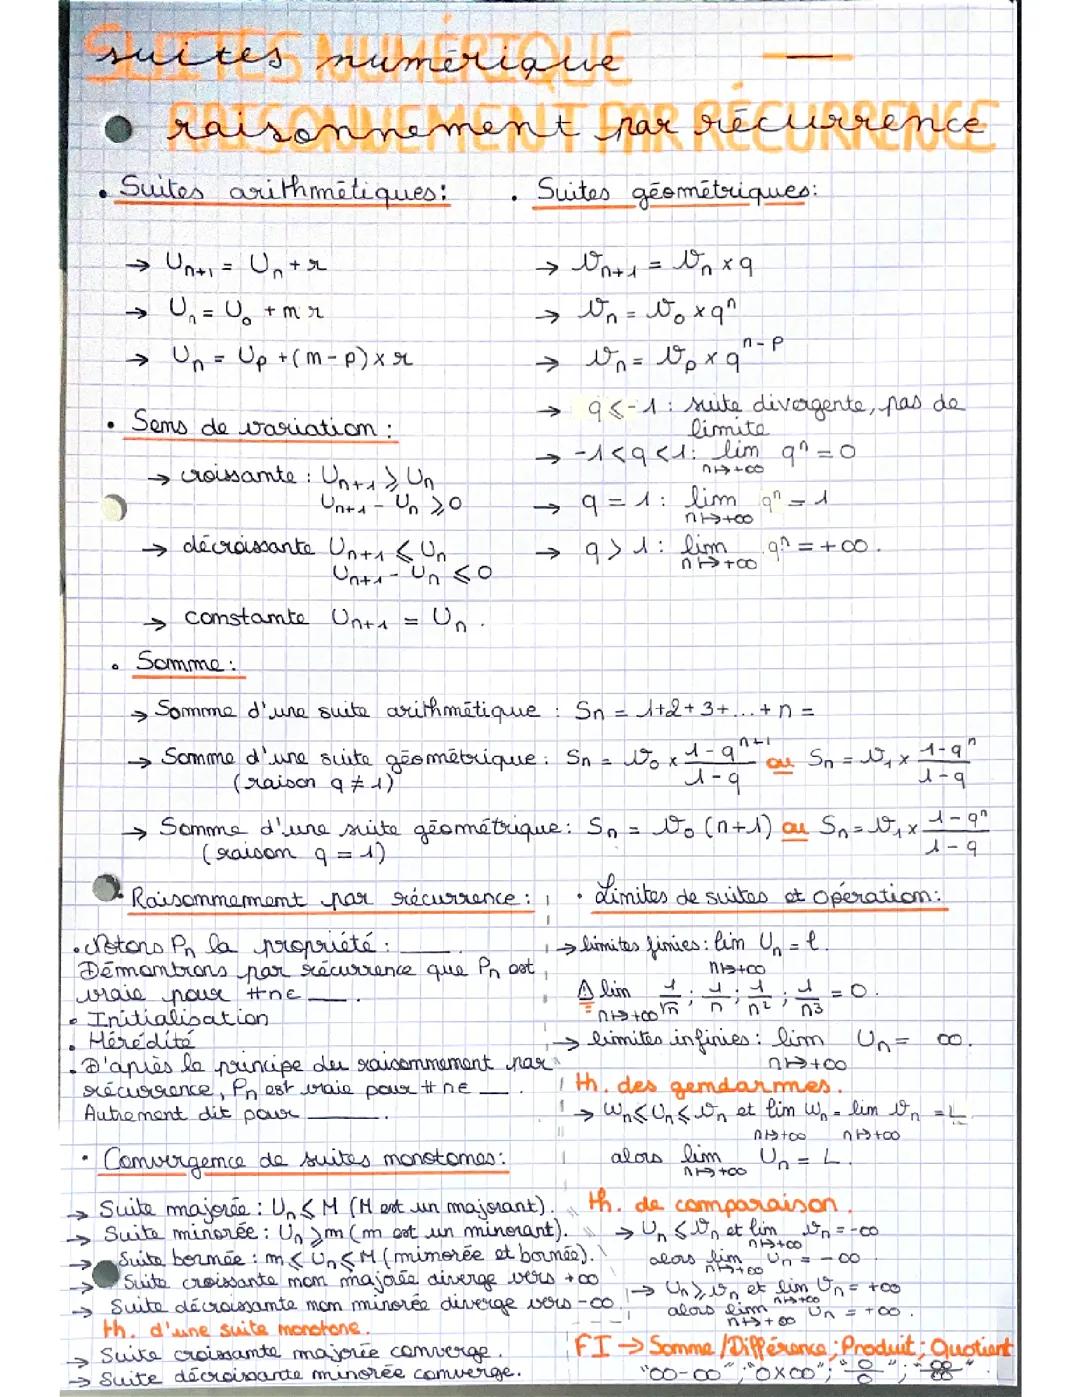 suites numérique
raisonnement par récurrence
• Suites arithmétiques:
→ Un+1 = Un + r
→ Un = U0 + nr
→ Un = Up + (n-p) × r
• Sens de variation :
→ croissante : Un+1 ⩾ Un
Un+1 - Un ⩾ 0
→ décroissante Un+1 ⩽ Un
Un+1 - Un ⩽ 0
→ constante Un+1 = Un.
• Suites géométriques:
→ Vn+1 = Vn × q
→ Vn = V0 × q^n
→ Vn = Vp × q^n-p
→ q ⩽ -1 : suite divergente, pas de
limite
→ -1 < q < 1 : lim q^n = 0
n↦+∞
→ q = 1 : lim q^n = 1
n↦+∞
→ q > 1 : lim q^n = +∞.
n↦+∞
• Somme :
→ Somme d'une suite arithmétique : Sn = 1+2+3+...+n =
→ Somme d'une suite géométrique : Sn = V0 × (1-q^n+1)/(1-q) ou Sn = V1 × (1-q^n)/(1-q)
(raison q ≠ 1)
→ Somme d'une suite géométrique : Sn = V0 (n+1) ou Sn = V1 × (1-q^n)/(1-q)
(raison q = 1)
• Raisonnement par récurrence :
• Notons Pn la propriété : ____.
Démontrons par récurrence que Pn est
vraie pour #n∈ ____.
• Initialisation
• Hérédité
• D'après le principe du raisonnement par
récurrence, Pn est vraie pour #n∈ ____.
Autrement dit pour ____.
• Convergence de suites monotones:
→ Suite majorée : Un ⩽ M (M est un majorant).
→ Suite minorée : Un ⩾ m (m est un minorant).
→ Suite bornée : m ⩽ Un ⩽ M (minorée et bornée).
→ Suite croissante non majorée diverge vers +∞
→ Suite décroissante non minorée diverge vers -∞
th. d'une suite monotone.
→ Suite croissante majorée converge.
→ Suite décroissante minorée converge.
• Limites de suites et opération:
→ limites finies : lim Un = ℓ.
n↦+∞
⚠ lim 1/√n ; 1/n ; 1/n² ; 1/n³ = 0.
n↦+∞
→ limites infinies : lim Un = ∞.
n↦+∞
th. des gendarmes.
→ Wn ⩽ Un ⩽ Vn et lim Wn = lim Vn = L
n↦+∞ n↦+∞
alors lim Un = L.
n↦+∞
th. de comparaison.
→ Un ⩽ Vn et lim Vn = -∞
n↦+∞
alors lim Un = -∞
n↦+∞
→ Un ⩾ Vn et lim Vn = +∞
n↦+∞
alors lim Un = +∞.
n↦+∞
FI → Somme/Différence ; Produit ; Quotient
"∞-∞" ; "0×∞" ; "0/0" ; "∞/∞"